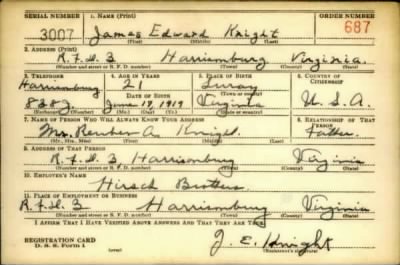 SERIAL NUMBER 1. NAME (Print) ORDER NUMBER
3007 James Edward Knight 687
(First) (Middle) (Last)
2. ADDRESS (Print)
R.F.D. 3 Harrisonburg Virginia.
(Number and street or R. F. D. number) (Town) (County) (State)
3. TELEPHONE 4. AGE IN YEARS 5. PLACE OF BIRTH 6. COUNTRY OF CITIZENSHIP
Harrisonburg 21 Luray
DATE OF BIRTH
838J June 19, 1919 Virginia U.S.A.
(Exchange) (Number) (Mo.) (Day) (Yr.) (State or country)
7. NAME OF PERSON WHO WILL ALWAYS KNOW YOUR ADDRESS 8. RELATIONSHIP OF THAT PERSON
Mr. Reuben A. Knight Father
(Mr., Mrs., Miss) (First) (Middle) (Last)
9. ADDRESS OF THAT PERSON
R.F.D. 3 Harrisonburg Virginia
(Number and street or R. F. D. number) (Town) (County) (State)
10. EMPLOYER'S NAME
Hirsch Brothers
11. PLACE OF EMPLOYMENT OR BUSINESS
R.F.D. 3 Harrisonburg Virginia
(Number and street or R. F. D. number) (Town) (County) (State)
I AFFIRM THAT I HAVE VERIFIED ABOVE ANSWERS AND THAT THEY ARE TRUE.
REGISTRATION CARD
D. S. S. Form 1 (over) J. E. Knight
(Registrant's signature)